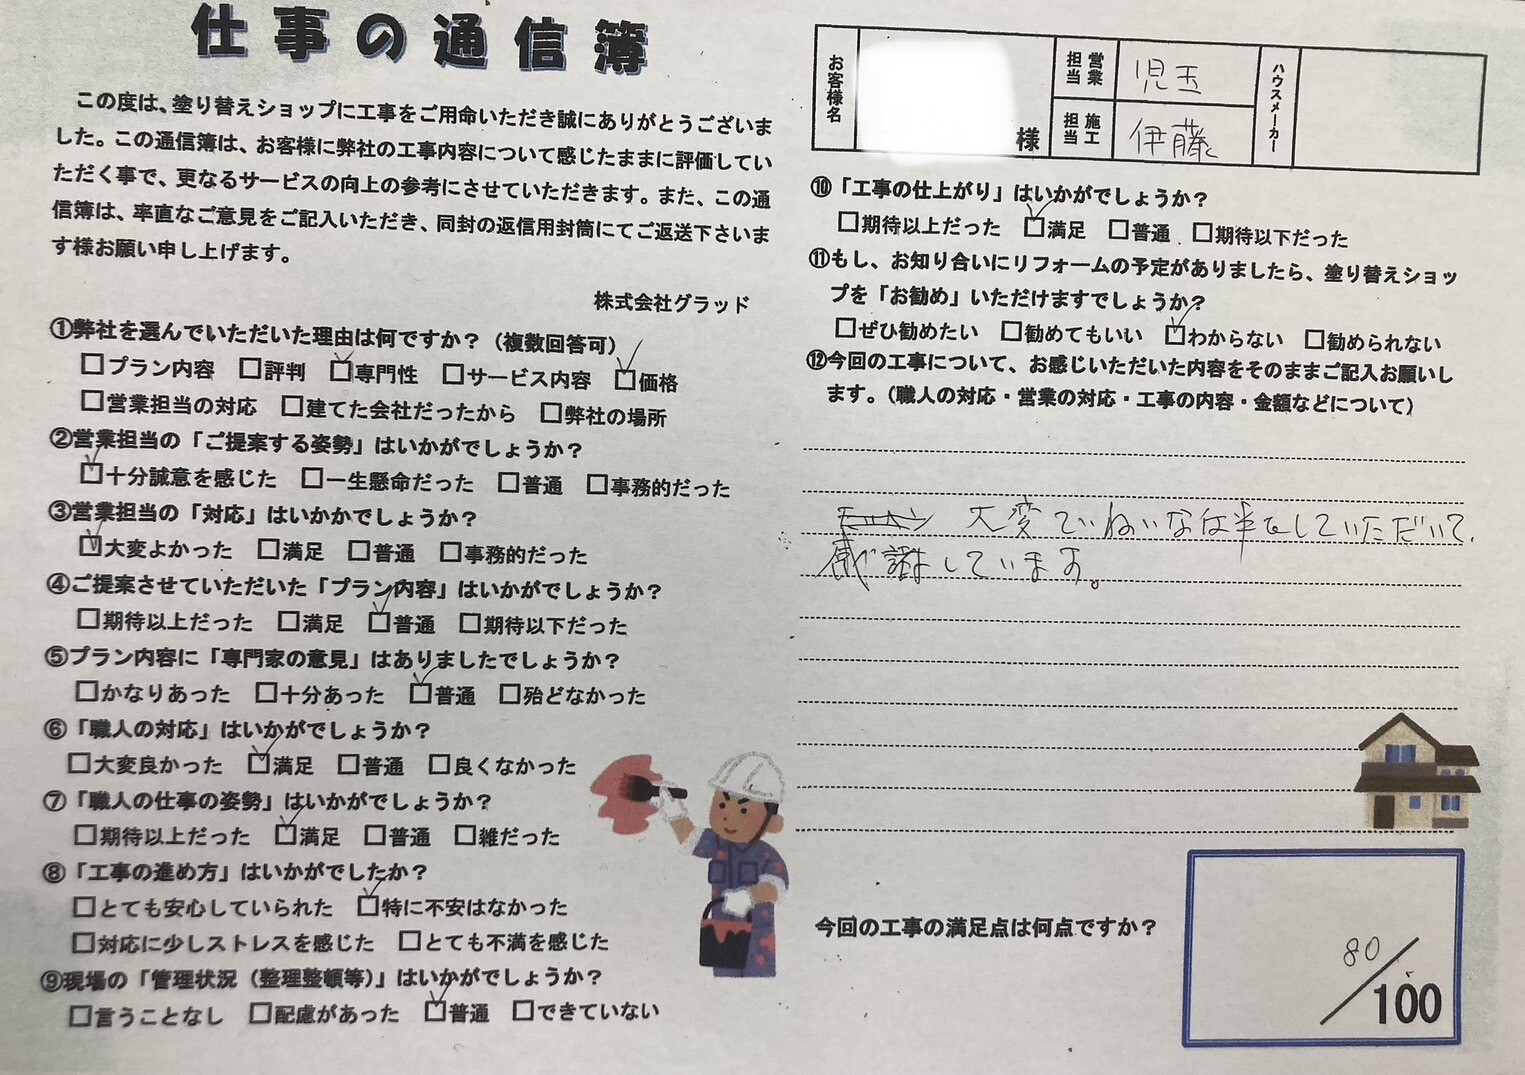 仕事の通信簿
この度は、塗り替えショップに工事をご用命いただき誠にありがとうございま
した。この通信簿は、お客様に弊社の工事内容について感じたままに評価してい
ただく事で、更なるサービスの向上の参考にさせていただきます。また、この通
信簿は、率直なご意見をご記入いただき、同封の返信用封筒にてご返送下さいま
す様お願い申し上げます。
株式会社グラッド
①弊社を選んでいただいた理由は何ですか？（複数回答可）
□プラン内容 □評判 ☑専門性 □サービス内容 ☑価格
□営業担当の対応 □建てた会社だったから □弊社の場所
②営業担当の「ご提案する姿勢」はいかがでしょうか？
☑十分誠意を感じた □一生懸命だった □普通 □事務的だった
③営業担当の「対応」はいかかでしょうか？
☑大変よかった □満足 □普通 □事務的だった
④ご提案させていただいた「プラン内容」はいかがでしょうか？
□期待以上だった □満足 ☑普通 □期待以下だった
⑤プラン内容に「専門家の意見」はありましたでしょうか？
□かなりあった □十分あった ☑普通 □殆どなかった
⑥「職人の対応」はいかがでしょうか？
□大変良かった ☑満足 □普通 □良くなかった
⑦「職人の仕事の姿勢」はいかがでしょうか？
□期待以上だった ☑満足 □普通 □雑だった
⑧「工事の進め方」はいかがでしたか？
□とても安心していられた ☑特に不安はなかった
□対応に少しストレスを感じた □とても不満を感じた
⑨現場の「管理状況（整理整頓等）」はいかがでしょうか？
□言うことなし □配慮があった ☑普通 □できていない
お客様名
様
営業担当
児玉
施工担当
伊藤
ハウスメーカー
⑩「工事の仕上がり」はいかがでしょうか？
□期待以上だった ☑満足 □普通 □期待以下だった
⑪もし、お知り合いにリフォームの予定がありましたら、塗り替えショッ
プを「お勧め」いただけますでしょうか？
□ぜひ勧めたい □勧めてもいい ☑わからない □勧められない
⑫今回の工事について、お感じいただいた内容をそのままご記入お願いし
ます。（職人の対応・営業の対応・工事の内容・金額などについて）
大変ていねいな仕事をしていただいて、
感謝しています。
今回の工事の満足点は何点ですか？
80／100